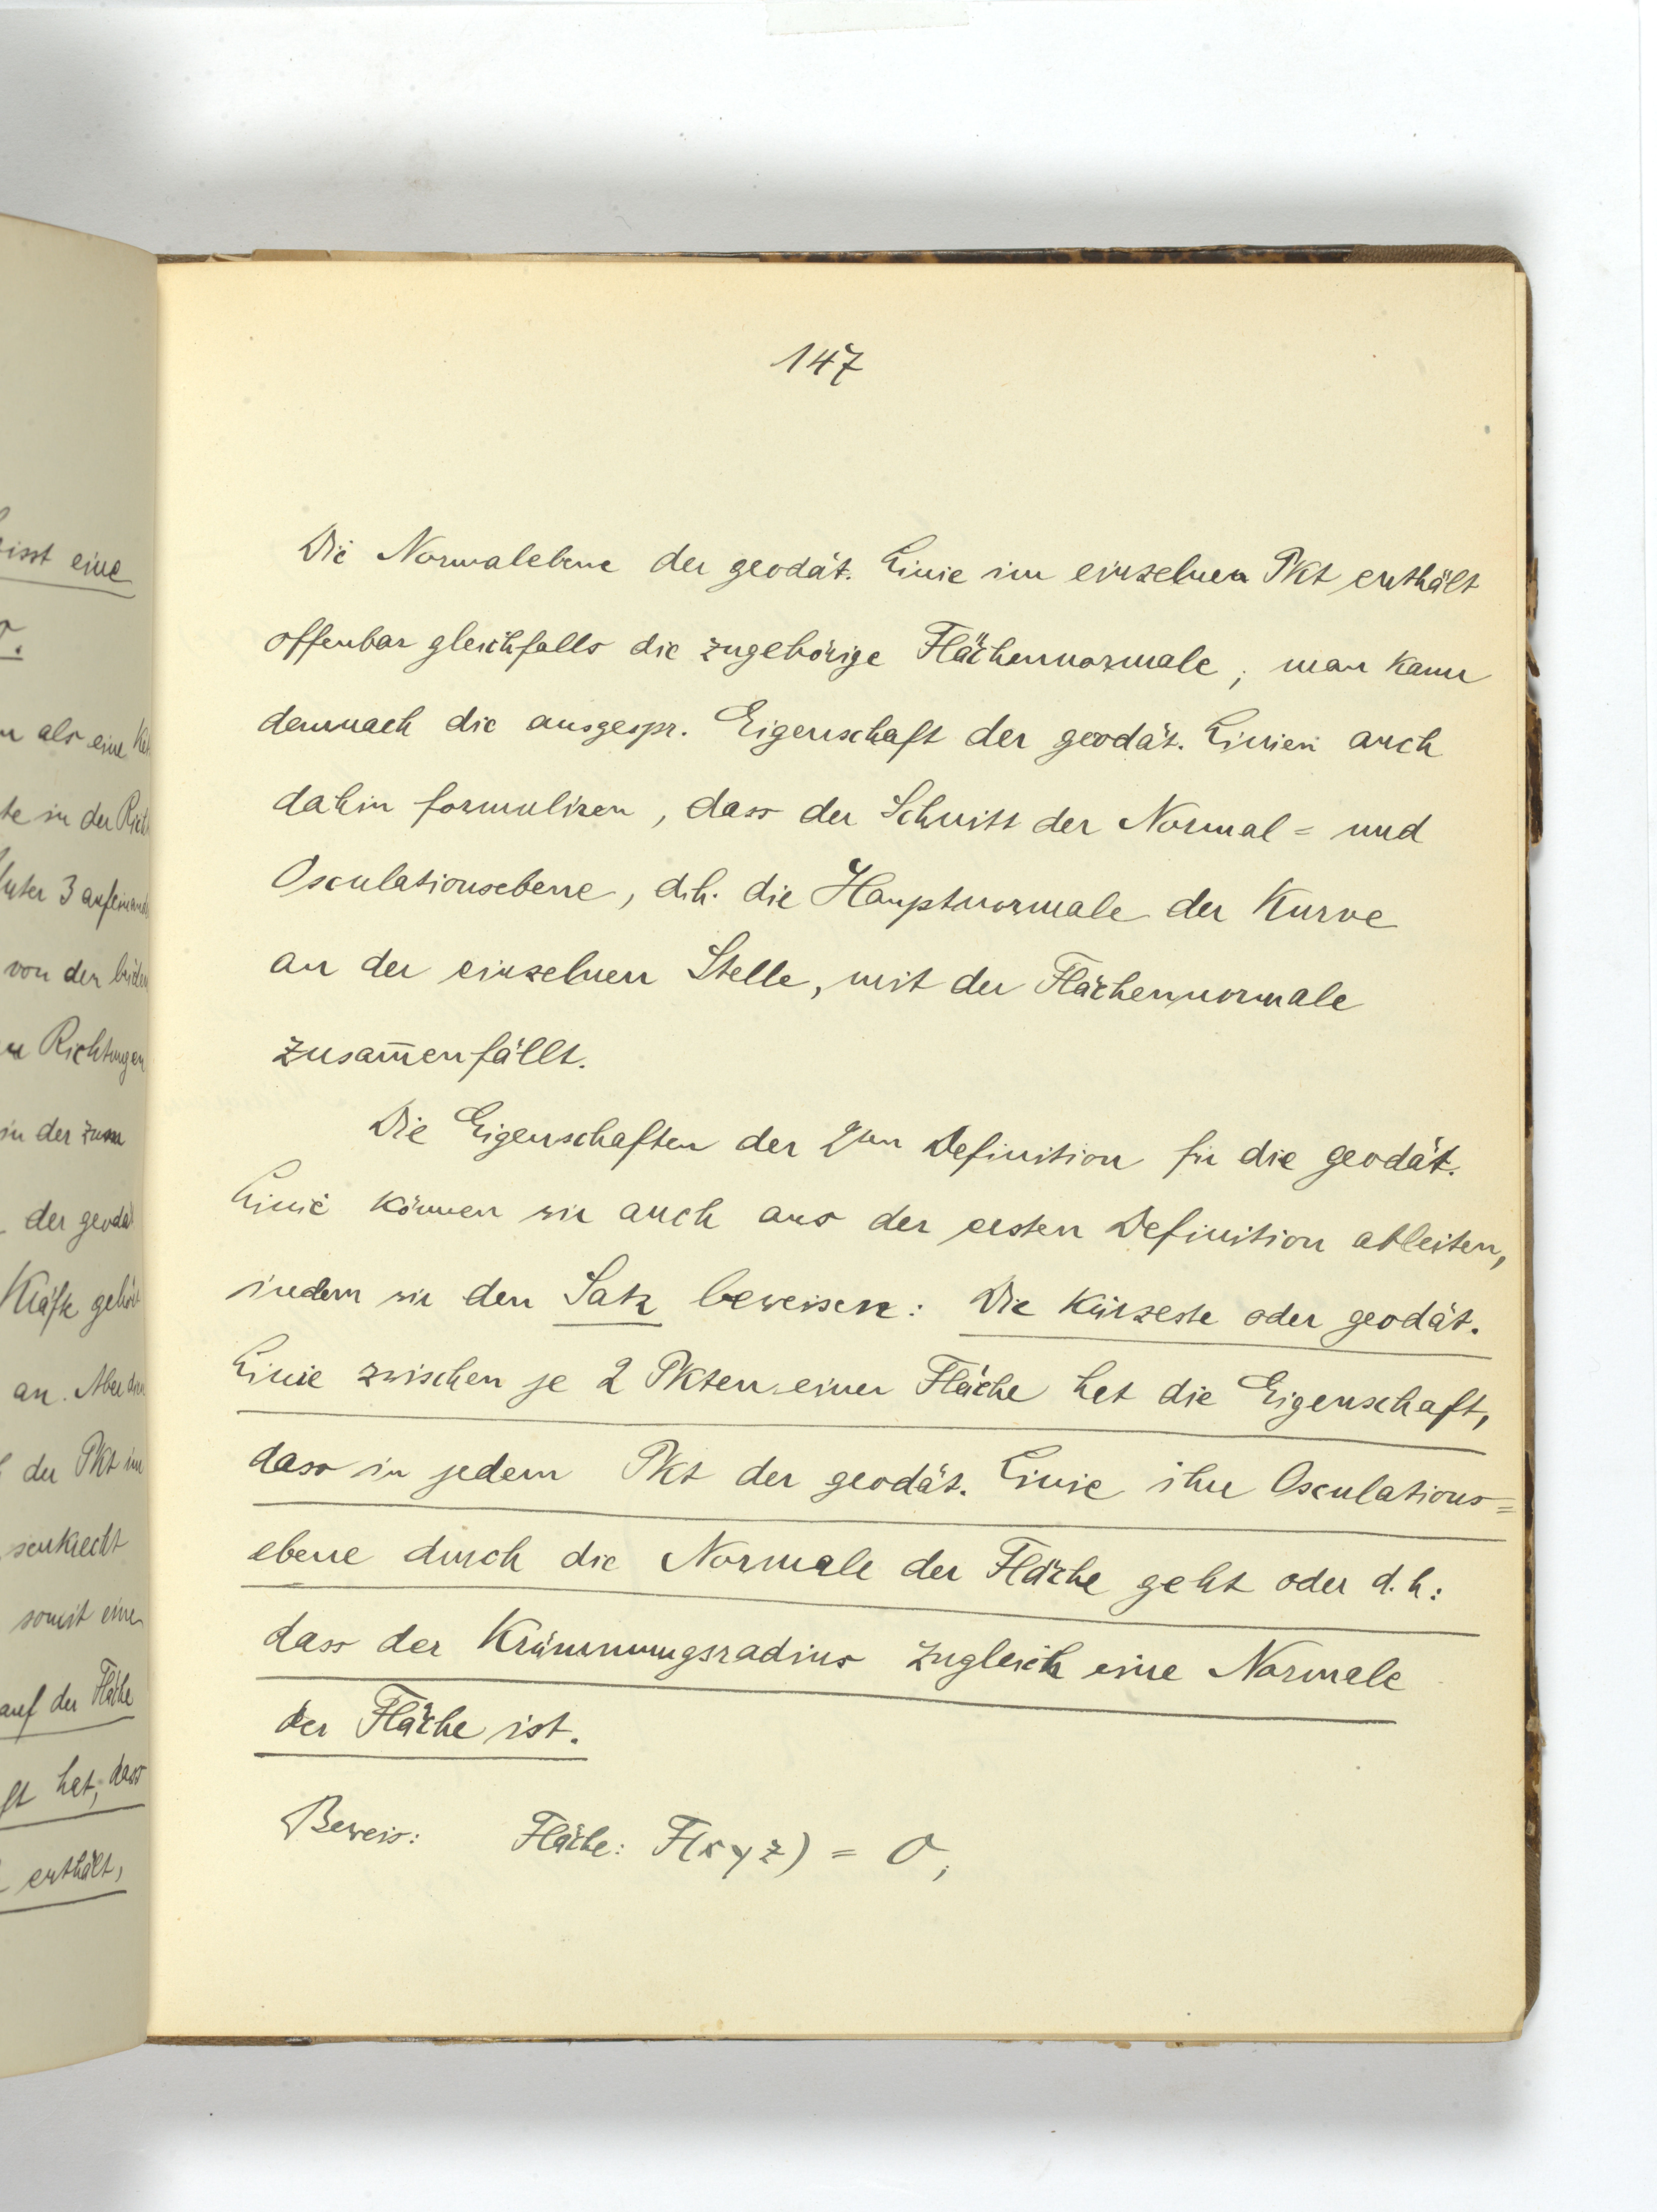 147
Die Normalebene der geodät. Linie im einzelnen Pkt enthält
offenbar gleichfalls die zugehörige Flächennormale; man kann
demnach die ausgespr. Eigenschaft der geodät. Linien auch
dahin formuliren, dass der Schnitt der Normal= und
Osculationsebene, d.h. die Hauptnormale der Kurve
an der einzelnen Stelle, mit der Flächennormale
zusam̅enfällt.
Die Eigenschaften der 2ten Definition für die geodät.
Linie können wir auch aus der ersten Definition ableiten,
indem wir den Satz beweisen: Die kürzeste oder geodät.
Linie zwischen je 2 Pkten einer Fläche hat die Eigenschaft,
dass in jedem Pkt der geodät. Linie ihre Osculations=
ebene durch die Normale der Fläche geht oder d.h:
dass der Krümmungsradius zugleich eine Normale
der Fläche ist.
Beweis: Fläche: F(x y z) = 0;
isst eine
als eine
te in der
3
von den
Richtungen
in der
der geodät
Kräfte
an. Aber
der Pkt im
senkrecht
somit einen
auf der Fläche
hat, dass
enthält,